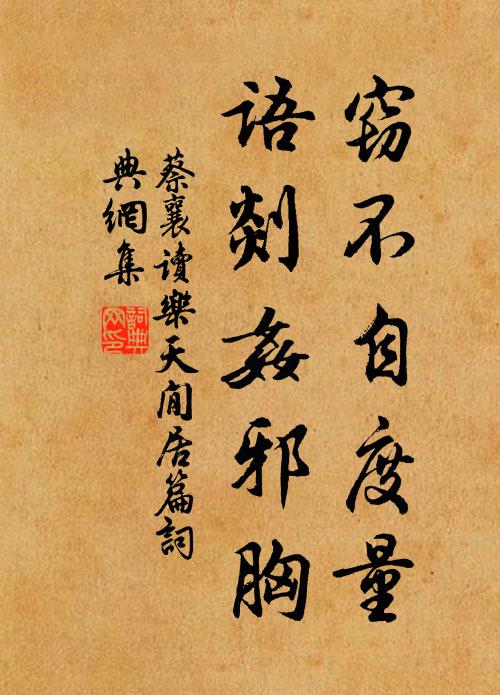 窃不自度量
語剡姦邪胸
蔡襄讀樂天閒居篇詞
典網集
詞典網印